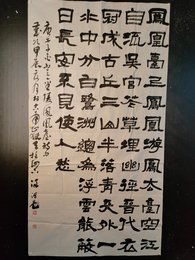 鳳凰臺上鳳凰遊鳳去臺空江
自流吳宮花草埋幽徑晉代衣
冠成古丘三山半落青天外二
水中分白鷺洲總為浮雲能蔽
日長安不見使人愁
金陵鳳凰臺
甲辰